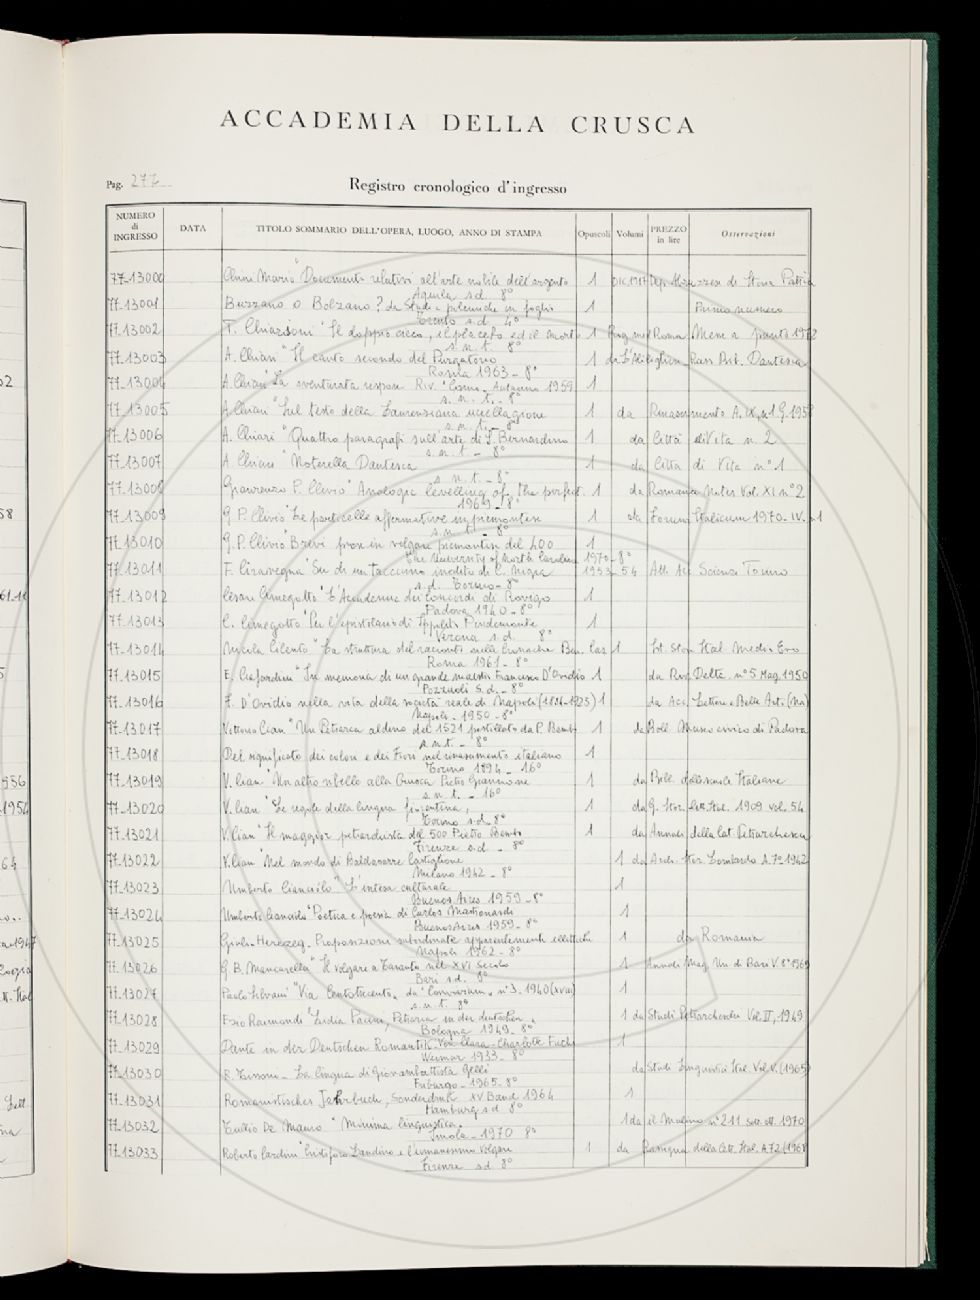 ACCADEMIA DELLA CRUSCA
Pag. 277
Registro cronologico d'ingresso
NUMERO di INGRESSO DATA TITOLO SOMMARIO DELL'OPERA, LUOGO, ANNO DI STAMPA Opuscoli Volumi PREZZO in lire Osservazioni
77-13000 Chini Mario "Documenti relativi all'arte nobile dell'argento 1 Dic. 1917 Dep. Abruzzese di Storia Patria
Aquila s.d. 8°
77-13001 Buzzano o Bolzano? da Studi e polemiche in foglio 1 Primo numero
Trento s.d. 4°
77-13002 T. Chiarsoni "Il doppio cieco, il placebo ed il morto 1 Roma Mene a 1972
s.n.t. 8°
77-13003 A. Chiari "Il canto secondo del Purgatorio 1 da L'Alighieri Rass. Bib. Dantesca
Roma 1963 - 8°
77-13004 A. Chiari "La sventurata rispose Riv. "Como" Autunno 1959 1
s.n.t. - 8°
77-13005 A. Chiari "Sul testo della Laurenziana uccellagione 1 da Rinascimento A. IX, n1 G. 1958
s.n.t. - 8°
77-13006 A. Chiari "Quattro paragrafi sull'arte di S. Bernardino 1 da Città di Vita n. 2
s.n.t. - 8°
77-13007 A. Chiari "Noterella Dantesca 1 da Città di Vita n° 1
s.n.t. - 8°
77-13008 Gianrenzo P. Clivio "Analogic levelling of the perfect. 1 da Romance Notes Vol. XI n° 2
1969 - 8°
77-13009 G. P. Clivio "Le particelle affermative in piemontese 1 da Forum Italicum 1970-IV. n1
s.n.t. - 8°
77-13010 G. P. Clivio "Brevi prose in volgare piemontese del 400 1
The University of North Carolina 1970 - 8°
77-13011 F. Ciravegna "Su di un taccuino inedito di C. Nigra 1953-54 Atti Ac. Scienze Torino
s.d. Torino - 8°
77-13012 Cesare Cimegotto "L'Accademia dei Concordi di Rovigo 1
Padova 1940 - 8°
77-13013 C. Cimegotto "Per l'epistolario di Ippolito Pindemonte 1
Verona s.d. 8°
77-13014 Nicola Cilento "La struttura del racconto nelle Cronache Ben. Cas. 1 Ist. Stor. Ital. Medio Evo
Roma 1961 - 8°
77-13015 "In memoria di un grande maestro Francesco D'Ovidio 1 da Riv. Delta. n° 5 Mag. 1950
Pozzuoli s.d. - 8°
77-13016 F. D'Ovidio nella vita della società reale di Napoli (1884-1925) 1 da Acc. Lettere e Belle Arti (Na)
Napoli - 1950 - 8°
77-13017 Vittorio Cian "Un Petrarca aldino del 1521 postillato da P. Bembo 1 da Boll. Museo civico di Padova
s.n.t. - 8°
77-13018 Del significato dei colori e dei Fiori nel rinascimento italiano 1
Torino 1894 - 16°
77-13019 V. Cian "Un altro ribello alla Crusca Pietro Giannone 1 da Boll. della scuole Italiane
s.n.t. - 16°
77-13020 V. Cian "Le regole della lingua fiorentina, 1 da G. Stor. Lett. Ital. 1909 vol. 54
Torino s.d. 8°
77-13021 V. Cian "Il maggior petrarchista del 500 Pietro Bembo 1 da Annali della cat. Petrarchesca
Firenze s.d. - 8°
77-13022 V. Cian "Nel mondo di Baldassarre Castiglione 1 da Arch. Stor. Lombardo A. 7° 1942
Milano 1942 - 8°
77-13023 Umberto Cianciolo "L'intesa culturale 1
Buenos Aires 1959 - 8°
77-13024 Umberto Cianciolo "Poetica e poesia di Carlos Mastronardi 1
Buenos Aires 1959 - 8°
77-13025 Giulio Herczeg - Proposizioni subordinate apparentemente ellittiche 1 da Romania
Napoli 1962 - 8°
77-13026 G. B. Mancarella "Il volgare a Taranto nel XVI secolo 1 Annali Mag. Un. di Bari V. 1° 1969
Bari s.d. 8°
77-13027 Paolo Silvani "Via Centotrecento, da "Convivium, n° 3. 1940 (XVIII) 1
s.n.t. 8°
77-13028 Ezio Raimondi "Lidia Pacini, Petrarca in der deutschen, 1 da Studi Petrarcheschi Vol. II, 1949
Bologna 1949 - 8°
77-13029 Dante in der Deutschen Romantik. Von Clara-Charlotte Fuchs 1
Weimar 1933 - 8°
77-13030 R. Tissoni - La lingua di Giovambattista Gelli da Studi Linguistici Ital. Vol. V. (1965)
Friburgo - 1965 - 8°
77-13031 Romanistisches Jahrbuch, Sonderdruck XV Band 1964 1
Hamburg s.d 8°
77-13032 Tullio De Mauro "Minima linguistica, 1 da il Mulino n° 211 sett. ott. 1970
Imola - 1970 8°
77-13033 Roberto Cardini "Cristoforo Landino e l'umanesimo volgare 1 da Rassegna della Lett. Ital. A. 72 (1968
Firenze s.d. 8°